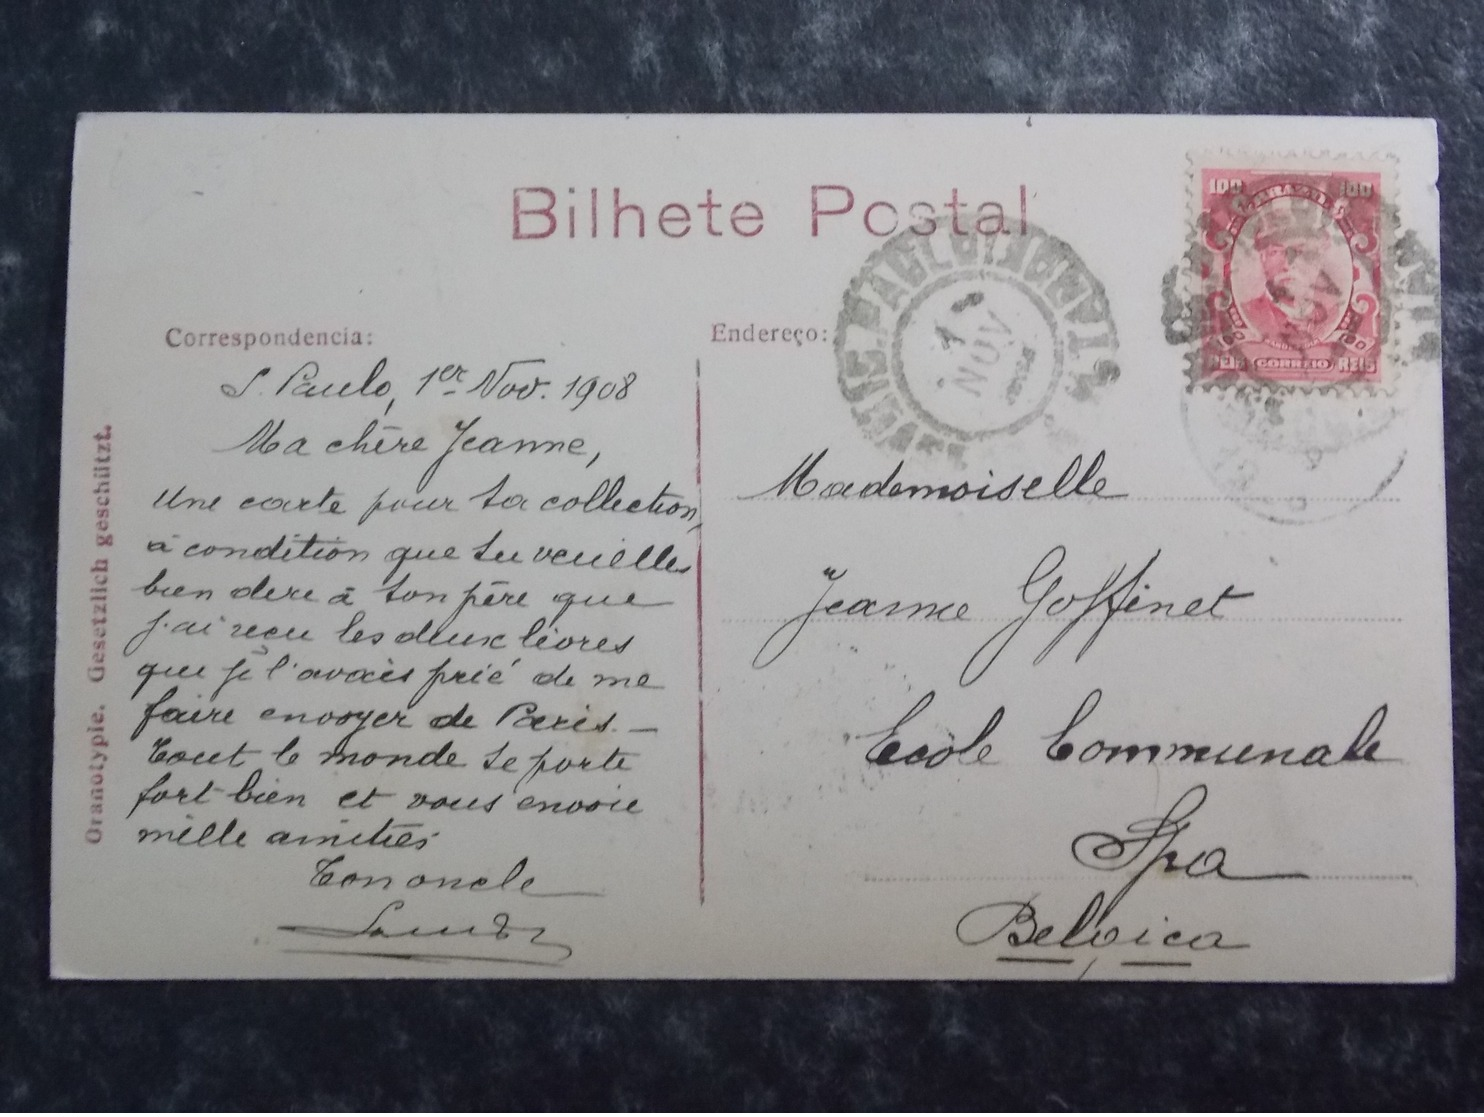 Bilhete Postal
Correspondencia:
S. Paulo, 1er Nov. 1908
Ma chère Jeanne,
Une carte pour ta collection,
à condition que tu veuilles
bien dire à ton père que
j'ai reçu les deux livres
que je l'avais prié de me
faire envoyer de Paris. —
Tout le monde se porte
fort bien et vous envoie
mille amitiés
Ton oncle
Oranotypie. Gesetzlich geschützt.
Endereço:
Mademoiselle
Jeanne Goffinet
Ecole Communale
Spa
Belgica
1 NOV
100 100
100 100
REIS CORREIO REIS